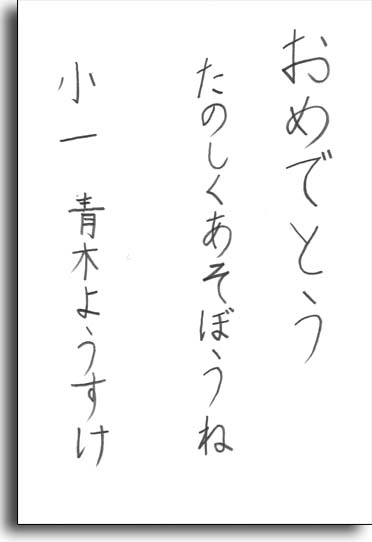 おめでとう
たのしくあそぼうね
小一 青木ようすけ